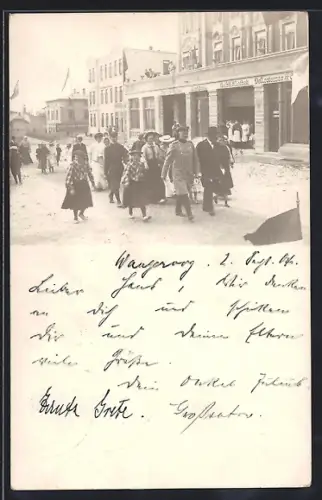 Wangeroog. 2. Sept. 04.
Lieber Hans, Wir denken
an Dich und schicken
Dir und deinen Eltern
viele Grüße.
Dein Onkel
Tante Grete.